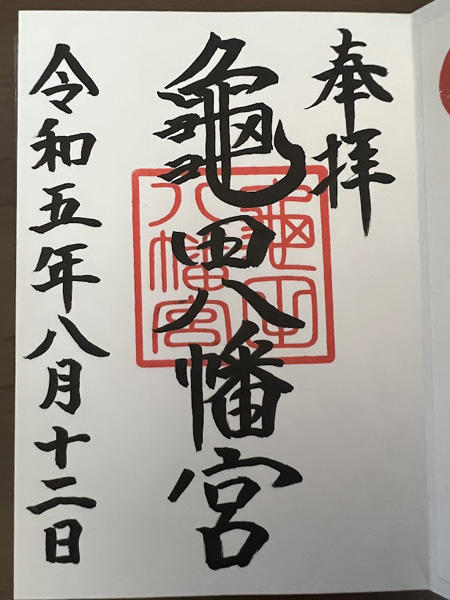 奉拝
龜田八幡宮
龜田八幡宮
令和五年八月十二日